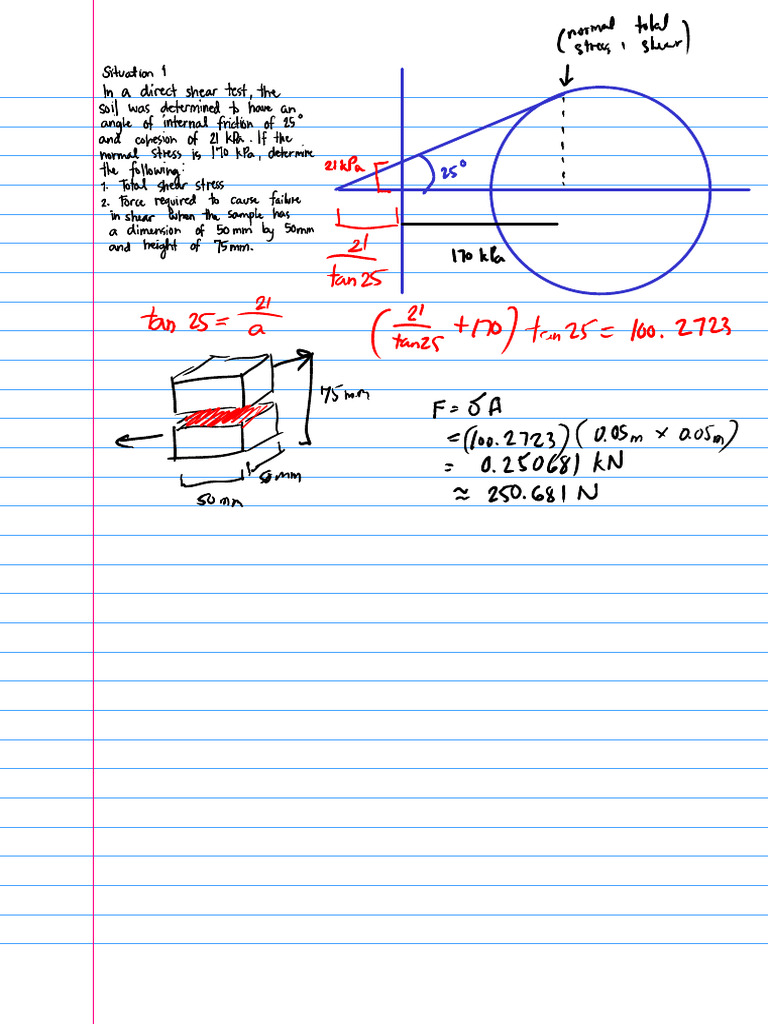 Situation 1
In a direct shear test, the
soil was determined to have an
angle of internal friction of 25°
and cohesion of 21 kPa. If the
normal stress is 170 kPa, determine
the following:
1. Total shear stress
2. Force required to cause failure
in shear when the sample has
a dimension of 50mm by 50mm
and height of 75mm.
(normal total
stress, shear)
21 kPa
25°
170 kPa
21
tan 25
tan 25 = 21/a
(21/tan25 + 170) tan 25 = 100.2723
75mm
50mm
50mm
F = σA
= (100.2723)(0.05m × 0.05m)
= 0.250681 kN
≈ 250.681 N